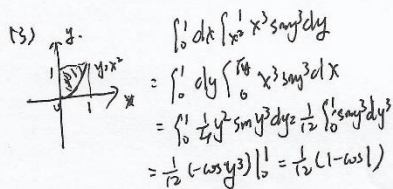 (3) y. ∫₀¹ dx ∫ₓ²¹ x³ sin y³ dy
1 y=x²
0 1 x
= ∫₀¹ dy ∫₀^√y x³ sin y³ dx
= ∫₀¹ 1/4 y² sin y³ dy = 1/12 ∫₀¹ sin y³ dy³
= 1/12 (-cos y³) |₀¹ = 1/12 (1-cos1)